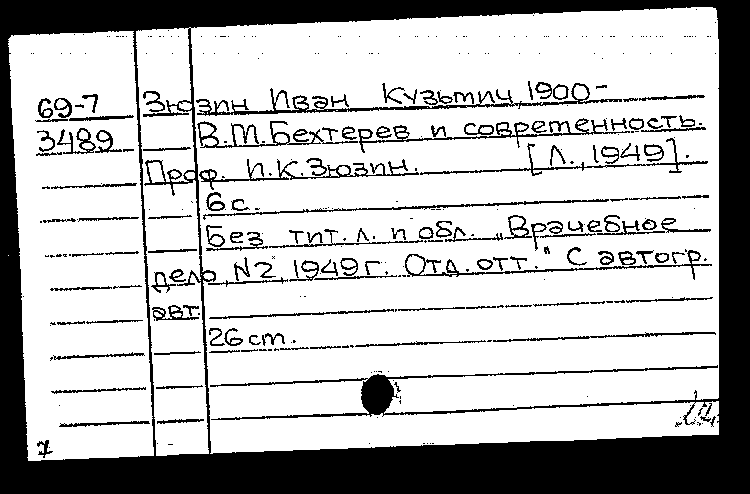 69-7 Зюзин Иван Кузьмич, 1900-
3489 В.М.Бехтерев и современность.
Проф. И.К.Зюзин. [Л., 1949].
6 с.
Без тит. л. и обл. „Врачебное
дело, N2, 1949 г. Отд. отт." С автогр.
авт.
26 ст.